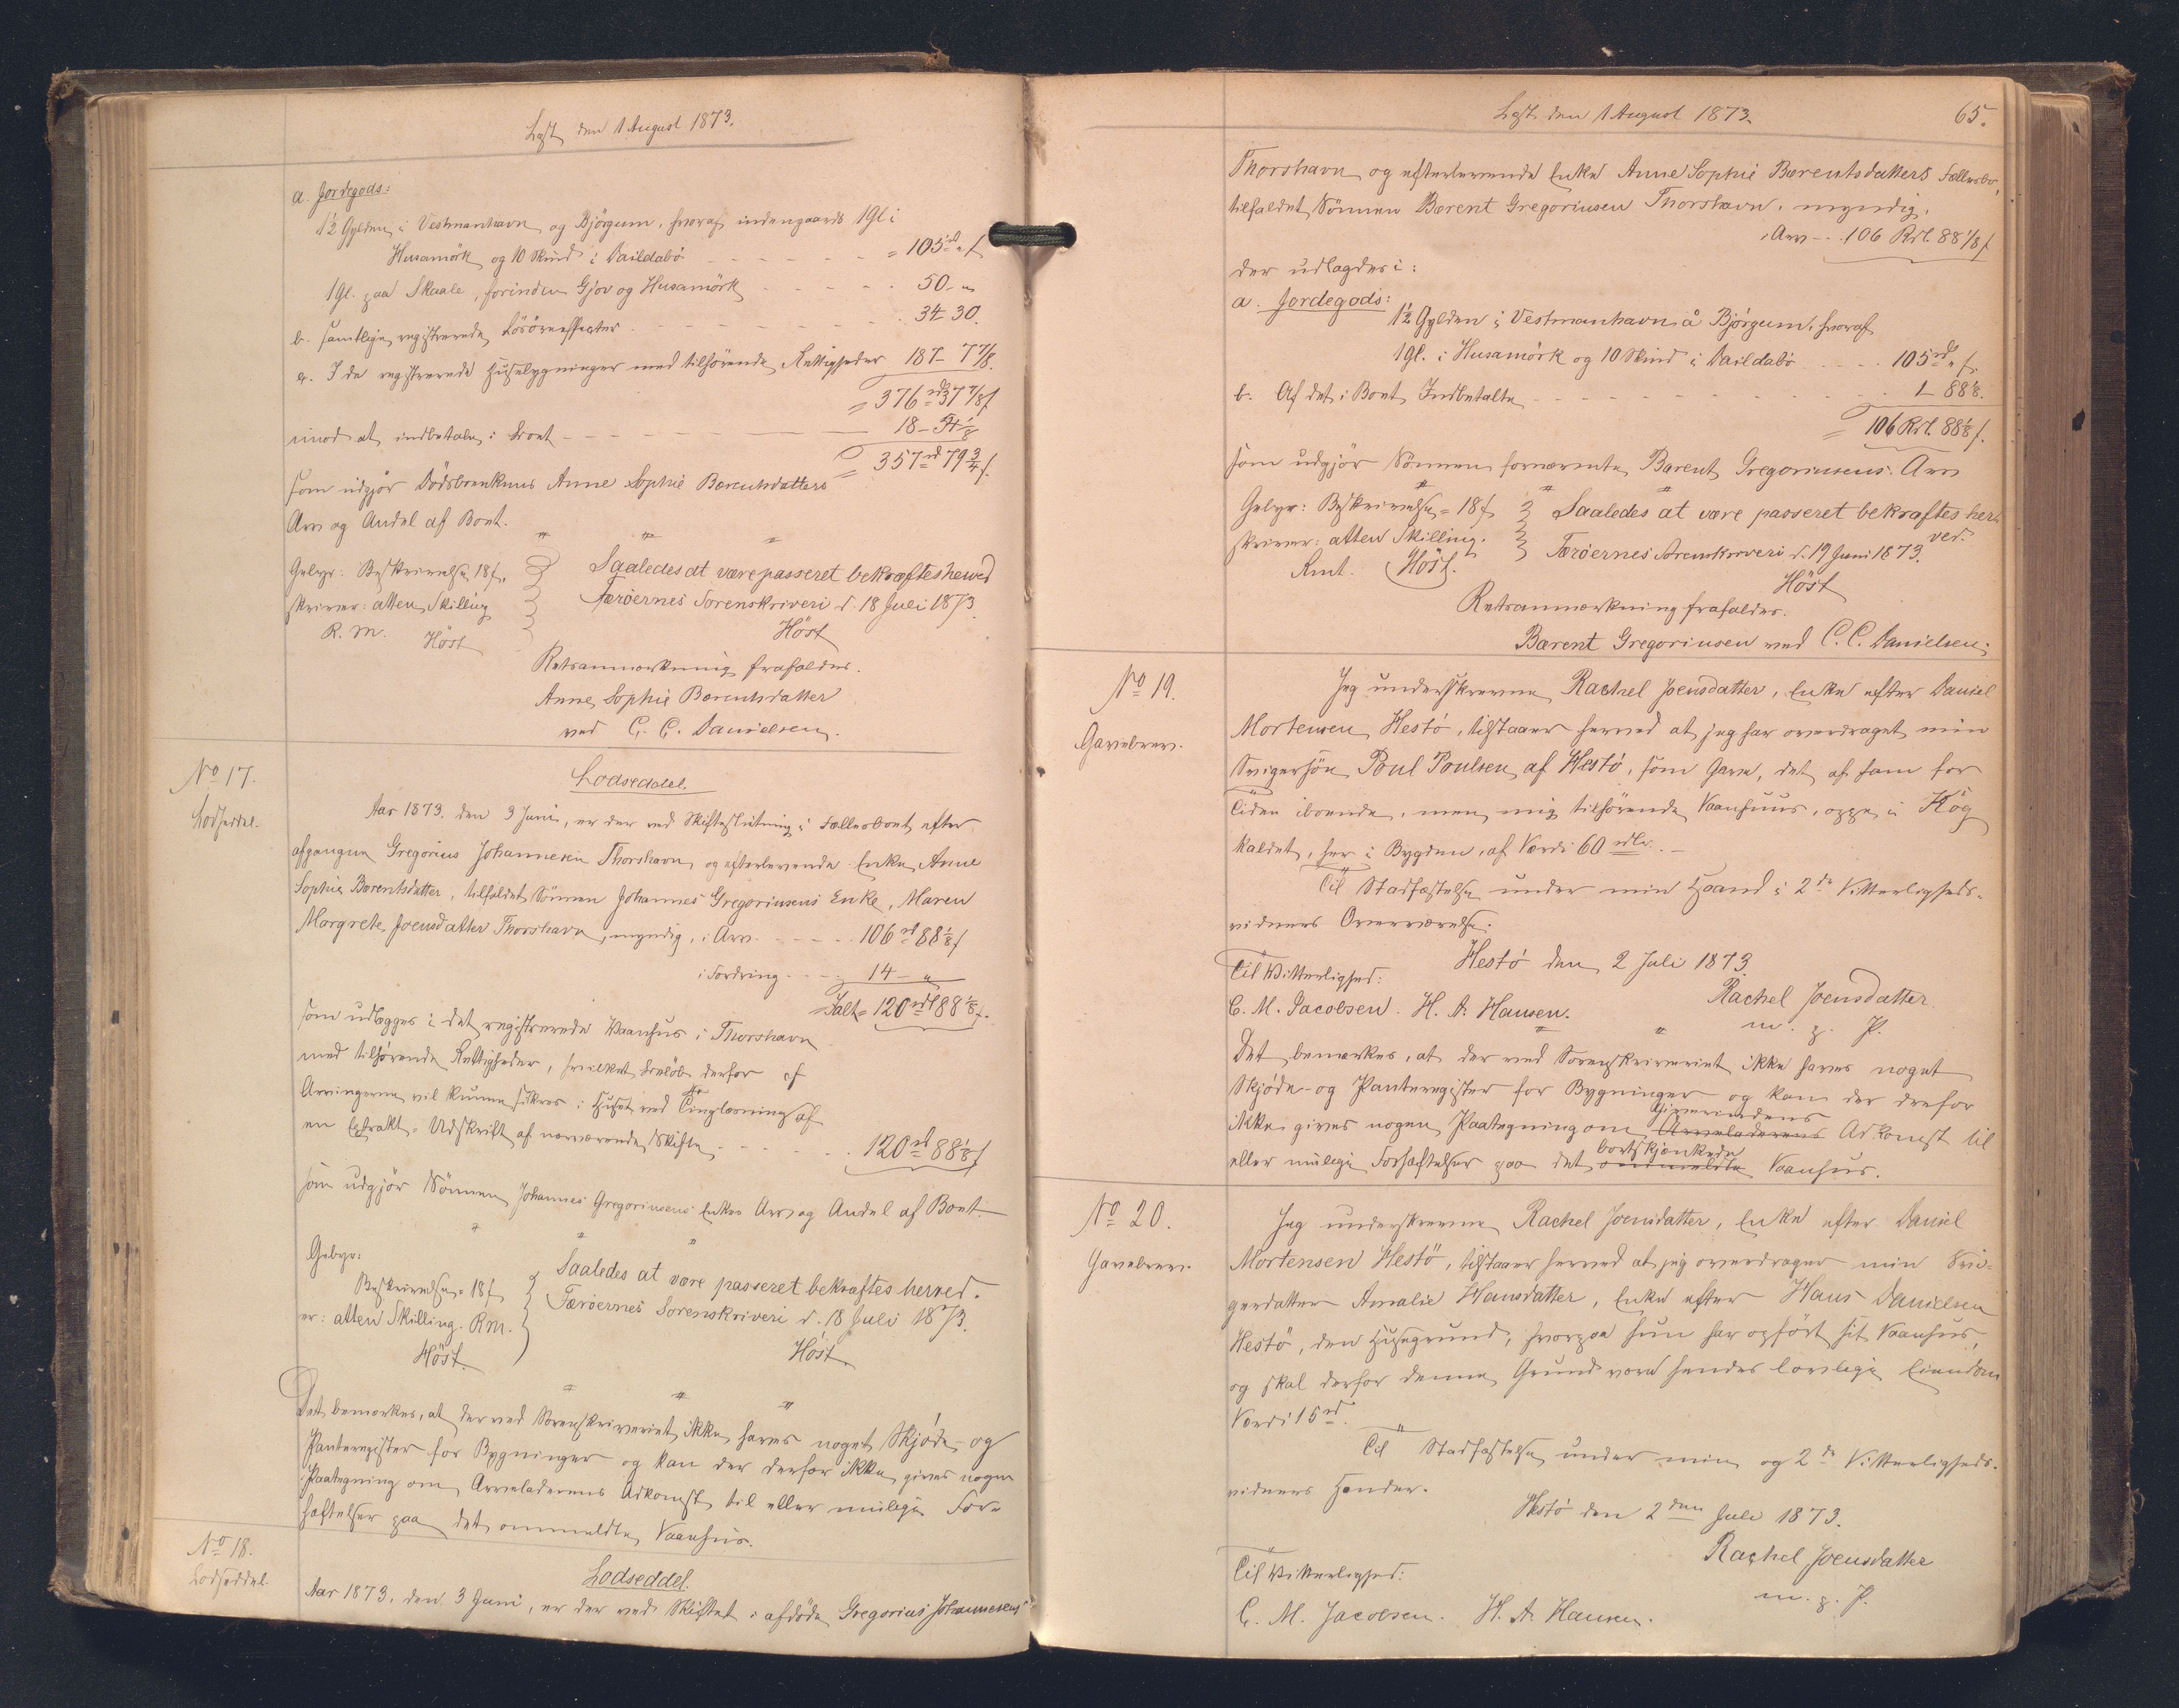 Lyst den 1 August 1873.
a. Jordegods:
1½ Gylden i Vestmanhavn og Björgum, hvoraf indengaards 1 Gl i
Husamörk og 10 Skind i Vaildabö - - - - - = 105 rd „ ſ
1 Gl. paa Skaale, forinden Gjov og Husamörk - - - - 50 - „
b. samtlige registrerede Lösöreeffecter - - - - - 34 - 30.
c. I de registrerede Huusbygninger med tilhörende Rettigheder 187 - 7 7/8.
= 376 rd 37 7/8 ſ
imod at indbetale i Boet - - - - - 18 - 54 1/8
= 357 rd 79 3/4 ſ.
som udgjör Dödsboenkens Anne Sophie Barentsdatters
Arv og Andel af Boet.
Gebyr: Beskrivelse 18 ſ,
skriver: atten Skilling
R. M. Höst
Saaledes at være passeret bekræftes herved
Færöernes Sorenskriveri d. 18 Juli 1873.
Höst
Retsanmærkning frafaldes.
Anne Sophie Barentsdatter
ved C. C. Danielsen.
No 17.
Lodseddel.
Lodseddel.
Aar 1873, den 3 Juni, er der ved Skifteslutning i Fællesboet efter
afgangne Gregorius Johannesen Thorshavn og efterlevende Enke Anne
Sophie Barentsdatter, tilfaldet Sönnen Johannes Gregoriusens Enke, Maren
Margrete Joensdatter Thorshavn, myndig, i Arv - - - - 106 rd 88 1/8 ſ
i Fordring - - - 14 - „
= Ialt = 120 rdl 88 1/8 ſ.
som udlægges i det registrerede Vaanhus i Thorshavn
med tilhörende Rettigheder, hvilket Belöb derfor af
Arvingerne vil kunne sikres i Huset ved Tinglæsning af
en Extrakt-Udskrift af nærværende Skifte - - - - - 120 rd 88 1/8 ſ
som udgjör Sönnen Johannes Gregoriusens Enkes Arv og Andel af Boet
Gebyr:
Beskrivelse = 18 ſ
er: atten Skilling. RM.
Höst.
Saaledes at være passeret bekræftes herved.
Færöernes Sorenskriveri d. 18 Juli 1873.
Höst.
Det bemærkes, at der ved Sorenskriveriet ikke haves noget Skjöde- og
Panteregister for Bygninger og kan der derfor ikke gives nogen
Paategning om Arveladerens Adkomst til eller mulige For-
hæftelser paa det ommeldte Vaanhus.
No 18.
Lodseddel.
Lodseddel.
Aar 1873, den 3 Juni, er der ved Skiftet i afdöde Gregorius Johannesens
Lyst den 1 August 1873.
65.
Thorshavn og efterlevende Enke Anne Sophie Barentsdatters Fællesbo,
tilfaldet Sönnen Barent Gregoriusen Thorshavn, myndig,
i Arv - - 106 Rdl. 88 1/8 ſ
der udlagdes i:
a. Jordegods:
1½ Gylden i Vestmanhavn å Björgum, hvoraf
1 Gl. i Husamörk og 10 Skind i Vaildabö - - - - 105 rd „ ſ.
b. Af det i Boet Indbetalte - - - - - 1 - 88 1/8.
= 106 Rdl. 88 1/8 ſ.
som udgjör Sönnen fornævnte Barent Gregoriusens Arv
Gebyr: Beskrivelse = 18 ſ
skriver: atten Skilling.
Rmt. Höst.
Saaledes at være passeret bekræftes her-
ved.
Færöernes Sorenskriveri d. 19 Juni 1873.
Höst
Retsanmærkning frafaldes.
Barent Gregoriusen ved C. C. Danielsen.
No 19.
Gavebrev.
Jeg underskrevne Rachel Joensdatter, Enke efter Daniel
Mortensen Hestö, tilstaaer herved at jeg har overdraget min
Svigersön Poul Poulsen af Hestö, som Gave, det af ham for
Tiden iboende, men mig tilhörende Vaanhuus, oppe i Hög
kaldet, her i Bygden, af Værdi 60 rdlr. -
Til Stadfæstelse under min Haand i 2de Vitterligheds-
vidners Overværelse.
Hestö den 2 Juli 1873.
Til Vitterlighed:
Rachel Joensdatter
C. M. Jacobsen. H. A. Hansen.
m. p. P.
Det bemærkes, at der ved Sorenskriveriet ikke haves noget
Skjöde- og Panteregister for Bygninger og kan der derfor
ikke gives nogen Paategning om Arveladerens Giverindens Adkomst til
eller mulige Forhæftelser paa det ommeldte bortskjænkede Vaanhus.
No 20.
Gavebrev.
Jeg underskrevne Rachel Joensdatter, Enke efter Daniel
Mortensen Hestö, tilstaaer herved at jeg overdrager min Svi-
gerdatter Amalie Hansdatter, Enke efter Hans Danielsen
Hestö, den Huusgrund, hvorpaa hun har opfört sit Vaanhus,
og skal derfor denne Grund være hendes lovlige Eiendom
Værdi 15 rd.
Til Stadfæstelse under min og 2de Vitterligheds-
vidners Hænder.
Hestö den 2den Juli 1873.
Rachel Joensdatter
Til Vitterlighed:
m. p. P.
C. M. Jacobsen. H. A. Hansen.